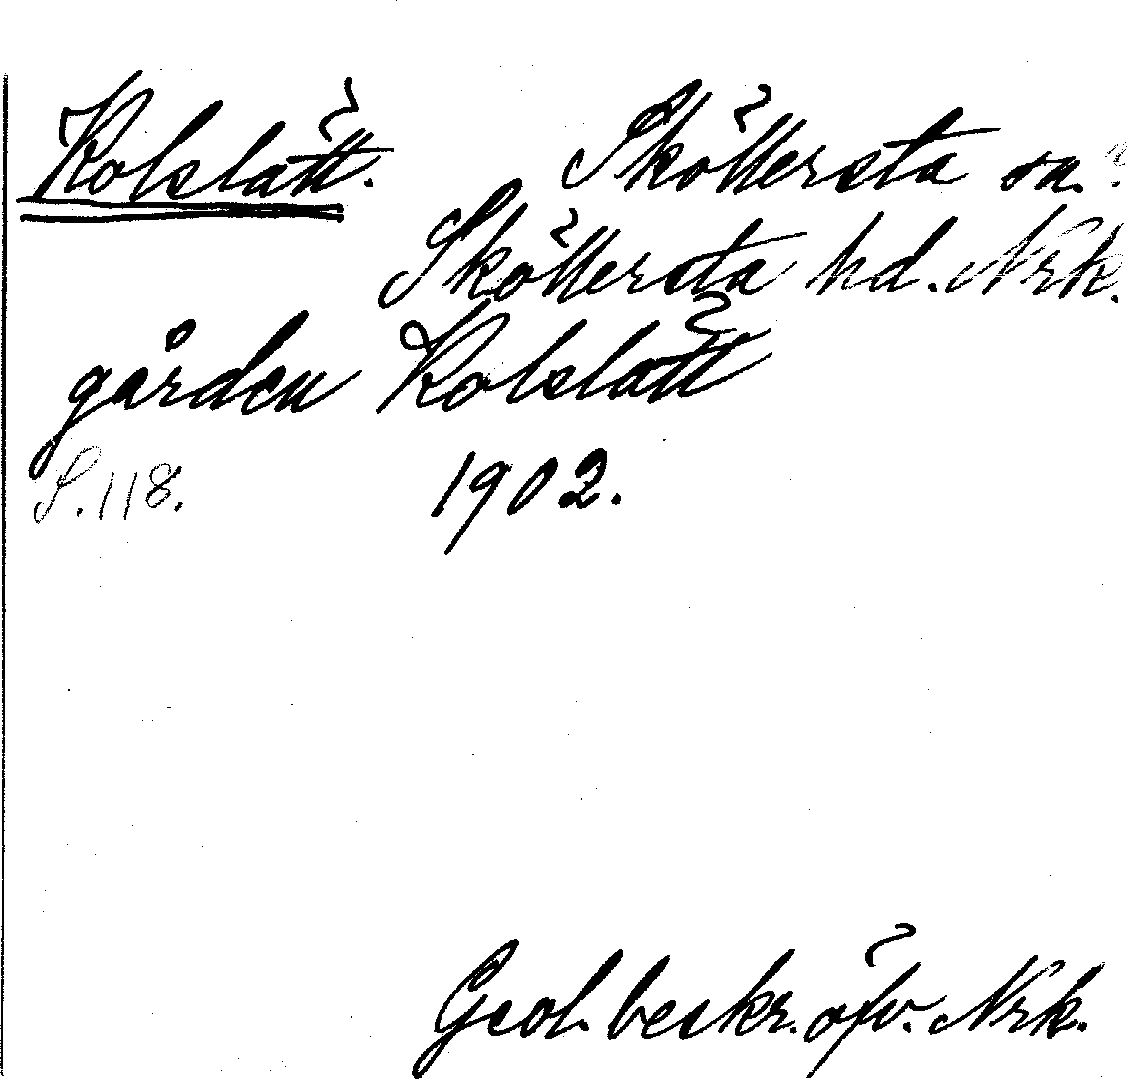 Kolslätt. Sköllersta sn.
Sköllersta hd. Nrk.
gården Kolslätt
S. 118. 1902.
Geol. beskr. öfv. Nrk.